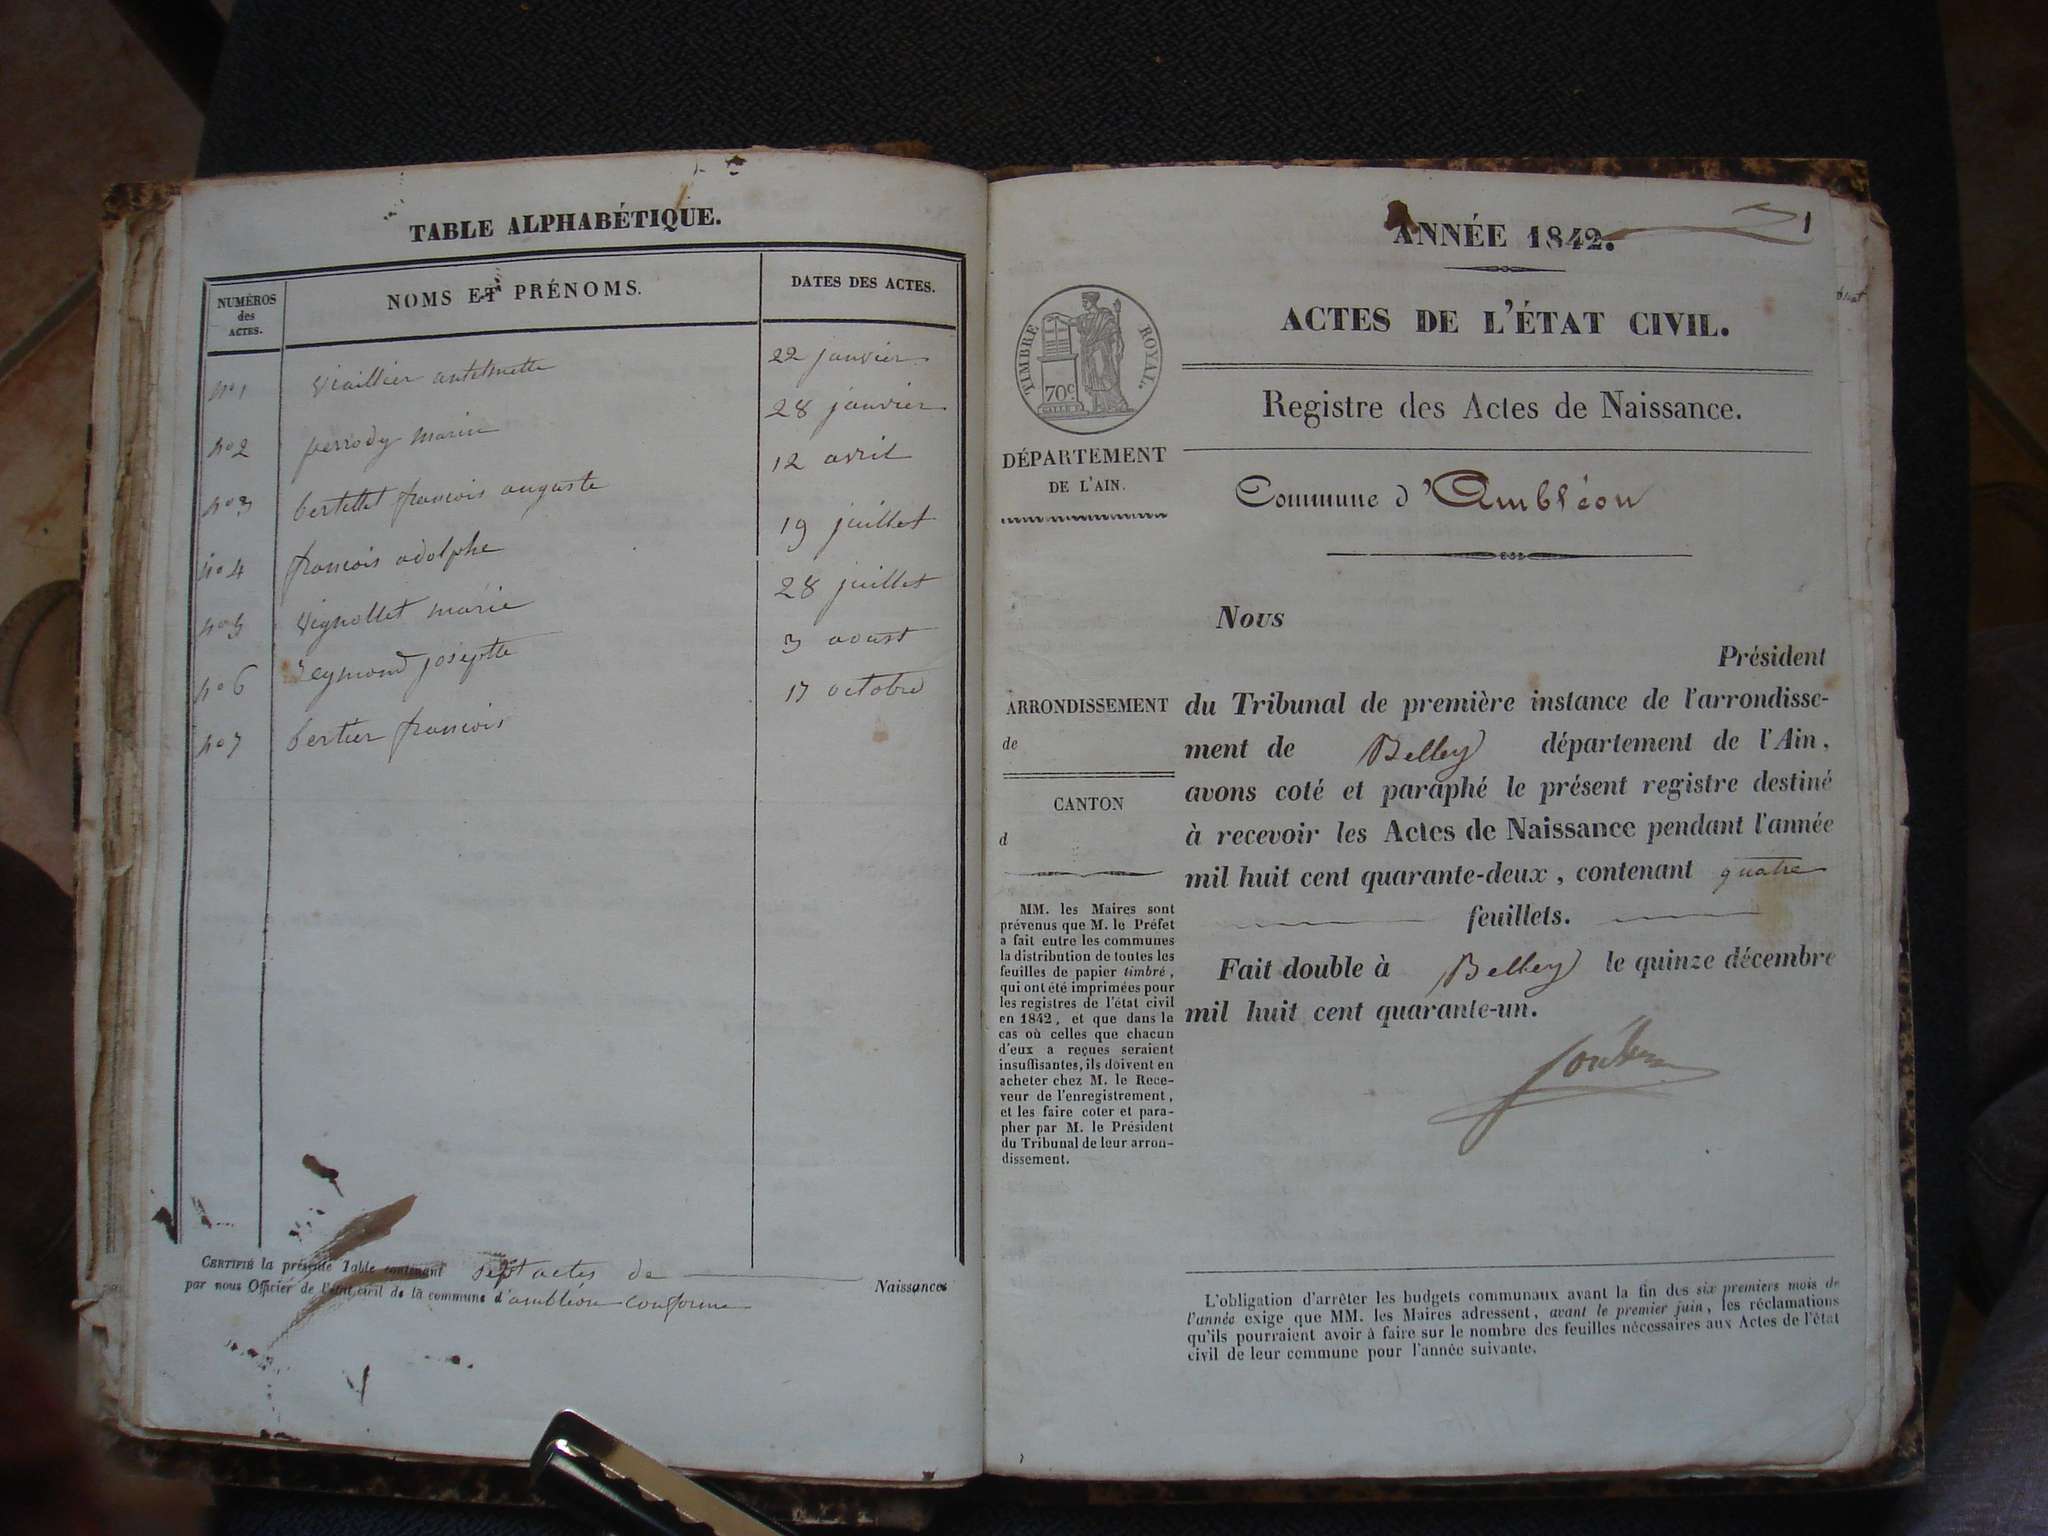 TABLE ALPHABÉTIQUE.
NUMÉROS des ACTES.
NOMS ET PRÉNOMS.
DATES DES ACTES.
nº1 antelmette 22 janvier
nº2 perrody marie 28 janvier
nº3 bertellet francois auguste 12 avril
nº4 francois adolphe 19 juillet
nº5 vignollet marie 28 juillet
nº6 Reymond josephte 3 aoust
nº7 bertier francois 17 octobre
CERTIFIÉ la présente Table contenant sept actes de Naissances
par nous Officier de l'état civil de la commune d'ambléon conforme
1
ANNÉE 1842.
TIMBRE ROYAL.
70c
ACTES DE L'ÉTAT CIVIL.
Registre des Actes de Naissance.
DÉPARTEMENT
DE L'AIN.
Commune d'Ambléon
Nous
Président
ARRONDISSEMENT
de
CANTON
d
du Tribunal de première instance de l'arrondisse-
ment de Belley département de l'Ain,
avons coté et paraphé le présent registre destiné
à recevoir les Actes de Naissance pendant l'année
mil huit cent quarante-deux, contenant quatre
feuillets.
Fait double à Belley le quinze décembre
mil huit cent quarante-un.
MM. les Maires sont
prévenus que M. le Préfet
a fait entre les communes
la distribution de toutes les
feuilles de papier timbré,
qui ont été imprimées pour
les registres de l'état civil
en 1842, et que dans le
cas où celles que chacun
d'eux a reçues seraient
insuffisantes, ils doivent en
acheter chez M. le Rece-
veur de l'enregistrement,
et les faire coter et para-
pher par M. le Président
du Tribunal de leur arron-
dissement.
L'obligation d'arrêter les budgets communaux avant la fin des six premiers mois de
l'année exige que MM. les Maires adressent, avant le premier juin, les réclamations
qu'ils pourraient avoir à faire sur le nombre des feuilles nécessaires aux Actes de l'état
civil de leur commune pour l'année suivante.